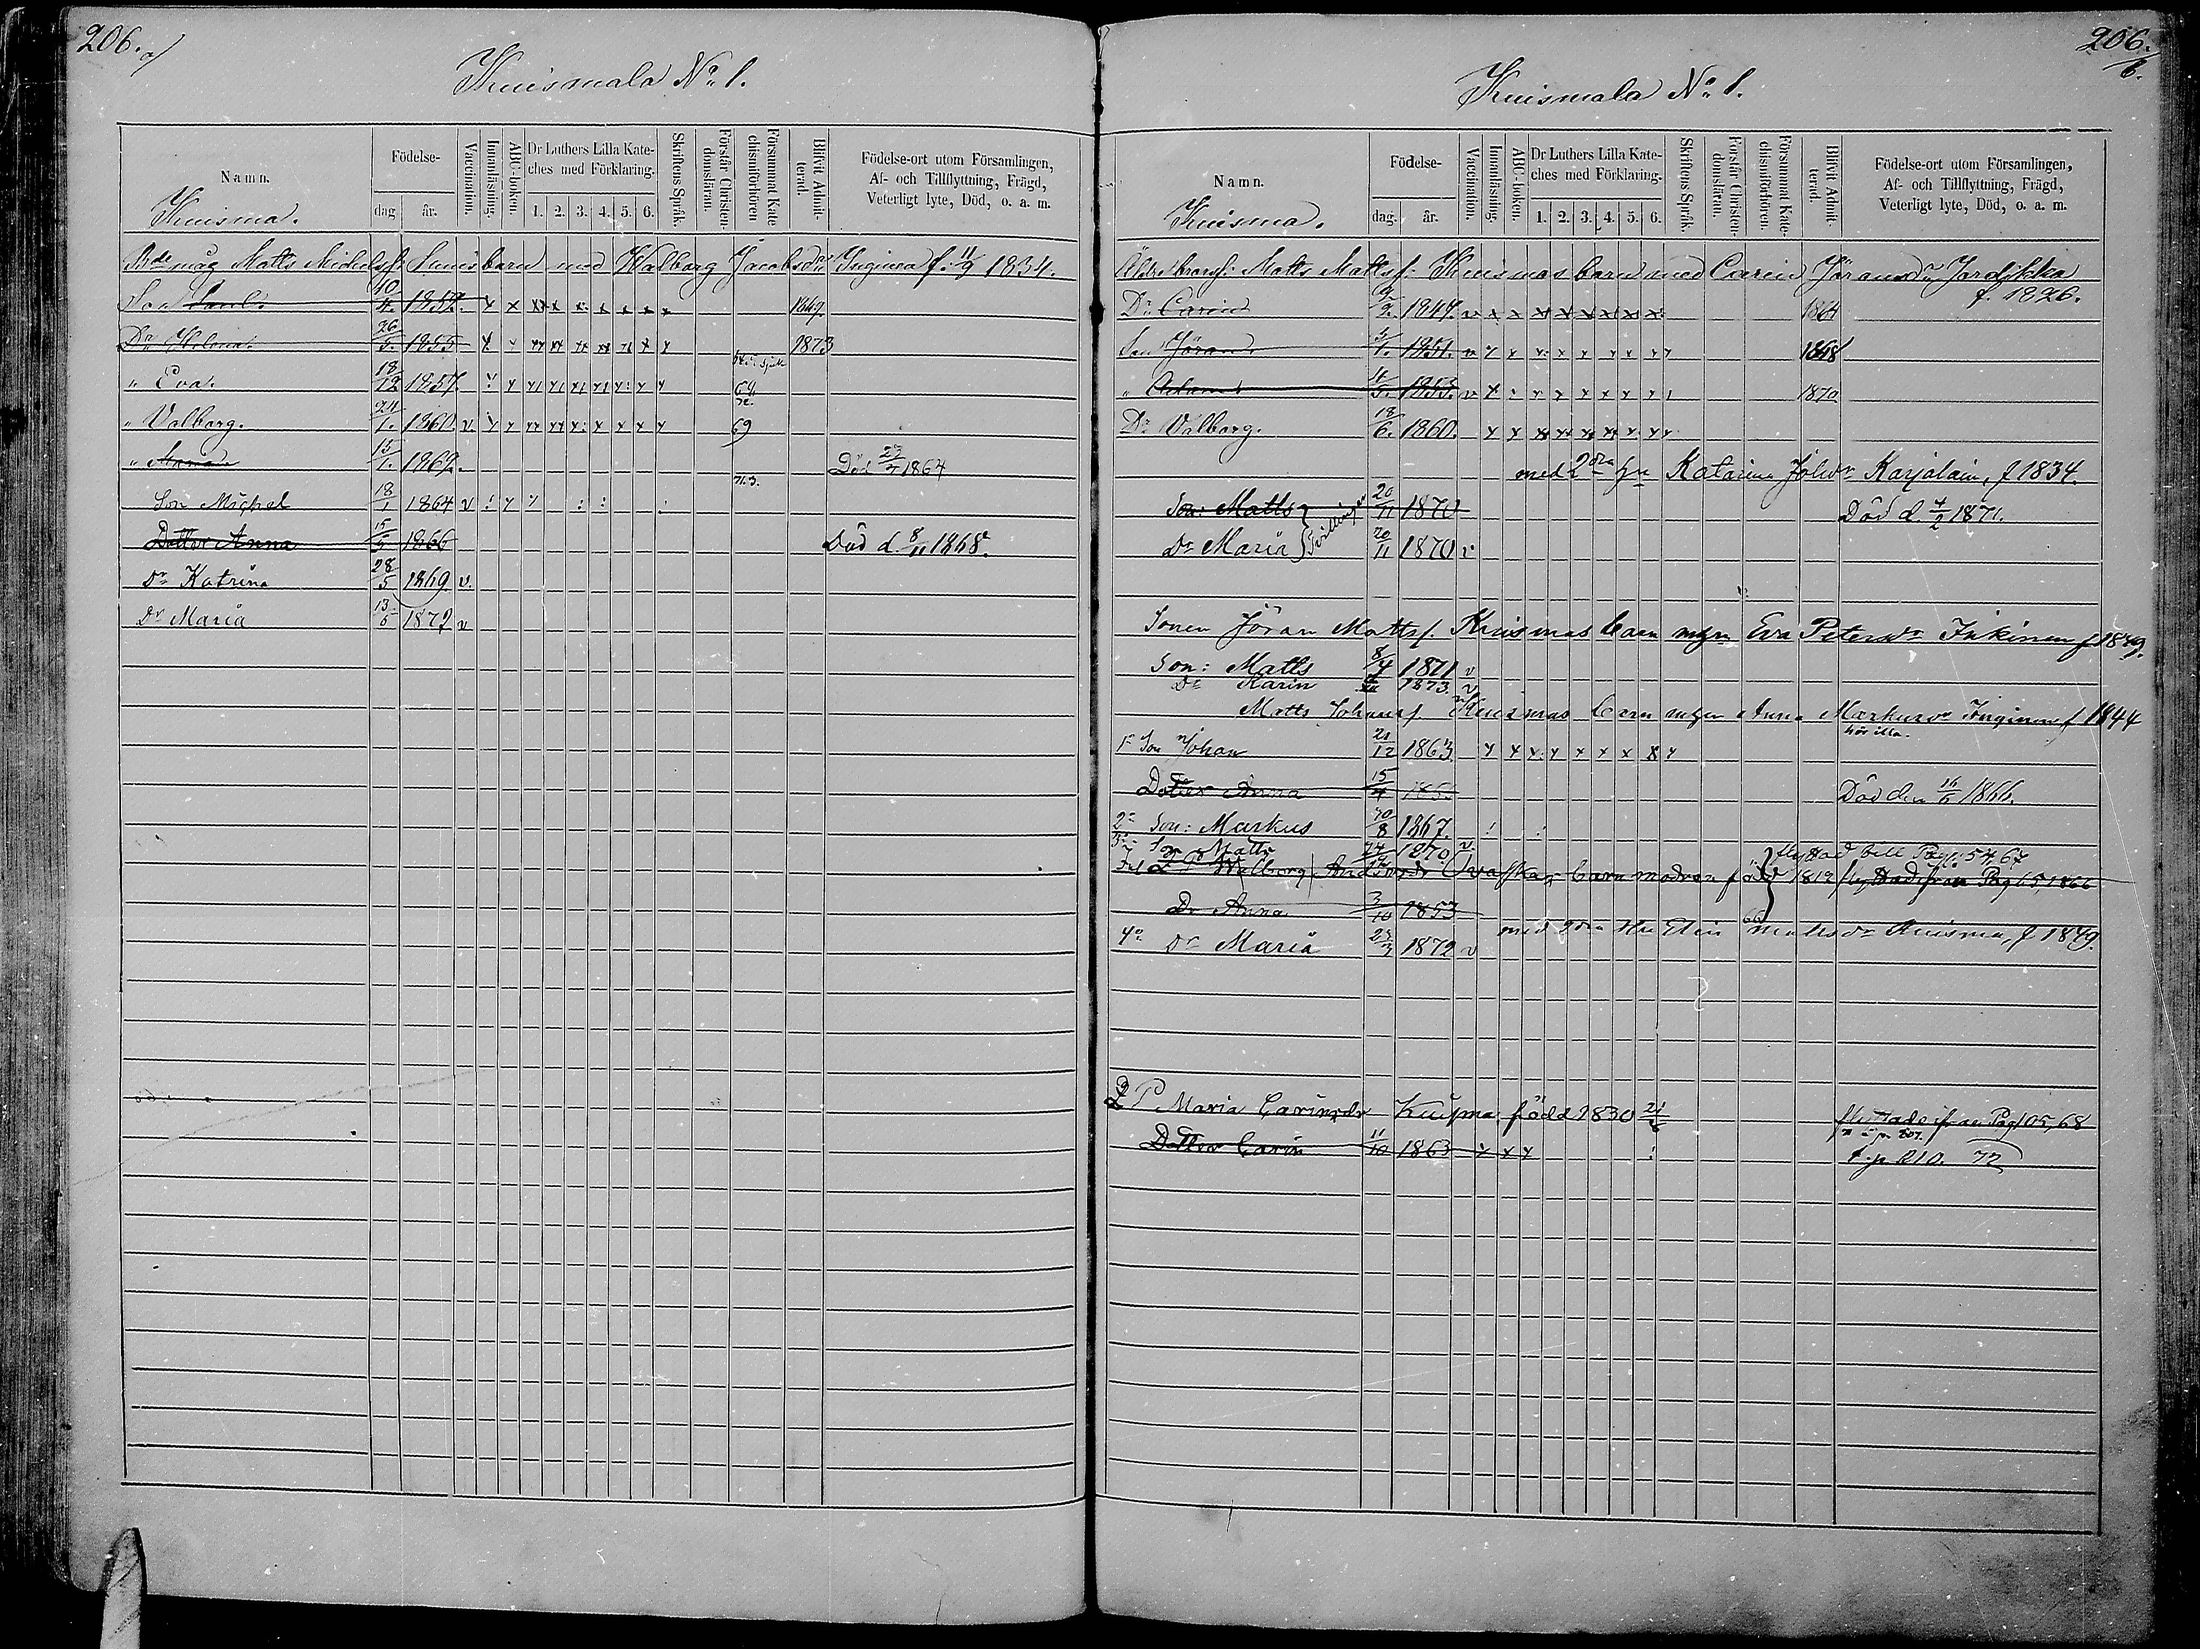 206. a/
Kuismala No 1.
Namn.
Födelse-
dag
år.
Vaccination.
Innanläsning.
ABC-boken.
Dr Luthers Lilla Kate-
ches med Förklaring.
1. 2. 3. 4. 5. 6.
Skriftens Språk.
Förstår Christen-
domsläran.
Försummat Kate
chismiförhören
Blifvit Admit-
terad.
Födelse-ort utom Församlingen,
Af- och Tillflyttning, Frägd,
Veterligt lyte, Död, o. a. m.
Kuisma.
måg Matts Michelsf barn med Walborg Jacobsdr Inginea f. 11/9 1834.
Son Paul. 10/4. 1852. 1869.
Dr Helena. 26/5. 1855 1873
" Eva. 18/12 1857. 69 72.
" Valborg. 24/1. 1860. v. 69
" Maria 15/1. 1862. Död 27/7 1864
71.3.
Son Michel 18/1 1864 v
Dotter Anna 15/5 1866 Död d. 8/11 1868.
Dr Katrina 28/5 1869. v.
Dr Maria 13/6 1872 v
206.
b.
Kuismala No 1.
Namn.
Födelse-
dag.
år.
Vaccination.
Innanläsning.
ABC-boken.
Dr Luthers Lilla Kate-
ches med Förklaring.
1. 2. 3. 4. 5. 6.
Skriftens Språk.
Förstår Christen-
domsläran.
Försummat Kate-
chismiförhören.
Blifvit Admit-
terad.
Födelse-ort utom Församlingen,
Af- och Tillflyttning, Frägd,
Veterligt lyte, Död, o. a. m.
Kuisma.
Matts Mattsf. Kuismas barn med Carin Göransdr Jordikka
f. 1826.
Dr Carin 9. 1847. 1864
Son Jöran. 1. 1851. 1868
" Adam 4/5. 1853. 1870
Dr Valborg. 18/6. 1860.
med 2dra hu Katarina Johdr Karjalain, f 1834.
Son: Matts 20/11 1870 Död d. 4/2 1871.
Tvillingar
Dr Maria 20/11 1870 v
Sonen Jöran Mattsf. Kuismas barn m Eva Petersdr Inkinen f 1849.
Son: Matts 8/4 1871 v
Dr Karin 1873. v
Matts Johansf Kuismas barn m Anna Markusdr Inginen f 1844
1o Son Johan 21/12 1863
hör illa.
Dotter Anna 15/4 Död den 16/6 1866.
2o Son: Markus 8 1867.
3o Son Matts 1870. v
flyttad till Pag: 54, 67
Walborg Andersdr Ovaskas barn modren född 1812 flyttad från Pag 65, 1866
Dr Anna 3/10 1853
med 2dra Hu Elin Mattsdr Kuisma, f 1849.
4o Dr Maria 1872 v
P Maria Carinsdr Kuisma född 1830
flyttade ifrån Pag 105, 68
Dotter Carin 11/10 1863
f. p 210. 72